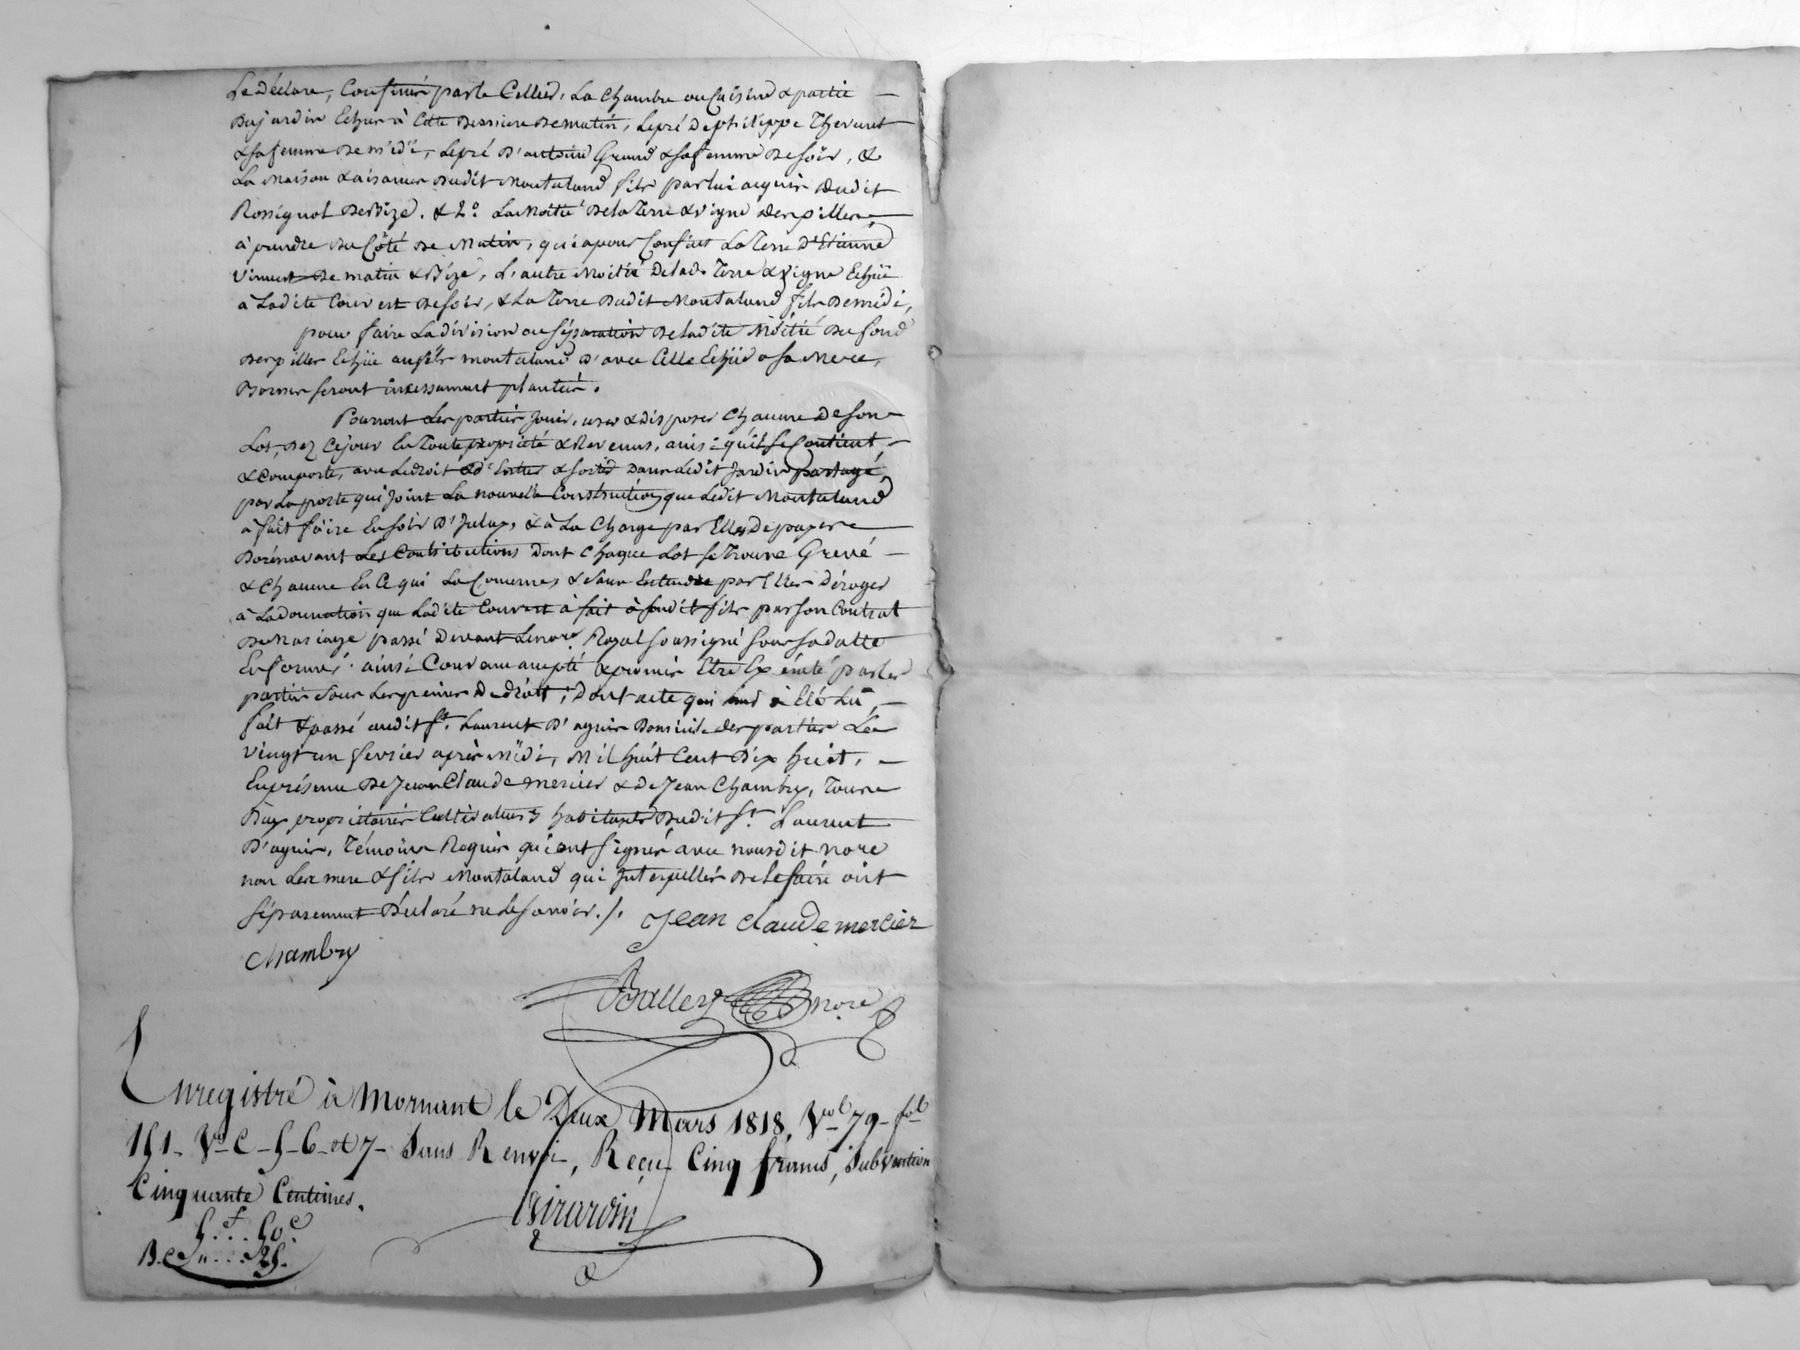 Le déclare, Confiné par le Cellier, La chambre ou Cuisine & partie
Dujardin Echue à Cette derniere De matin, Lepré Dephilippe Thevenet
& sa femme De midi, Lepré D'antoine Grand & sa femme De soir, &
La Maison & aisances Dudit Montaland fils par lui acquis dudit
Rossignol De Bize. & 2o. La Moitié De la Terre & vigne
à prendre Du Côté De Matin, qui a pour Confins La Terre D'Etienne
De matin & Bize, L'autre Moitié De lad. Terre & vigne Echüe
à Ladite Couvert De soir, & La Terre Dudit Montaland fils De midi,
pour faire La division ou séparation De ladite Moitié Du fond
Echüe au fils montaland D'avec Celle Echüe a sa Mere,
Bornes seront incessamment plantées.
Pourront Les parties Jouir, user & disposer Chacune De son
Lot, Dez Cejour En Toute propriété & Revenus, ainsi qu'il se Contient,
& Comporte, avec Ledroit d'Entrer & sortir Dans Ledit Jardin partagé,
par La porte qui Joint La nouvelle Construction que Ledit Montaland
a fait faire En soir D'Icelui, & à La Charge par Elles De payer
Dorénavant Les Contributions dont Chaque Lot se Trouve Grevé
& Chacune En Ce qui La Concerne, & sans Entendre par Elles Déroger
à La donnation que Ladite Couvert à fait à sondit fils par son Contrat
De Mariage passé Devant Le nore. Royal soussigné sous sa datte
En forme. ainsi Convenu accepté & promis Etre Exécuté par Les
parties sous Les peines De droit; Dont acte qui a Eté Lû,
fait & passé audit St. Laurent D'agnis Domicile des parties Le
vingt un fevrier après Midi, Mil huit Cent Dix huit,
En présence De Jean Claude Mercier & De Jean Chambry, Tous
Deux propriétaires Cultivateurs habitants Dudit St. Laurent
D'agnis, Témoins Requis qui ont signés avec nousdit nore
non Les mere & fils Montaland qui Interpellés De le faire ont
séparement Déclaré ne Le savoir./.
Jean claude mercier
chambry
nore
Enregistré à Mornant le Deux Mars 1818, Vol 79 fol
151 Vo C 5 6 et 7 Sans Renvoi, Reçu Cinq francs, subvention
Cinquante Centimes.
Girardin
5f..50c.